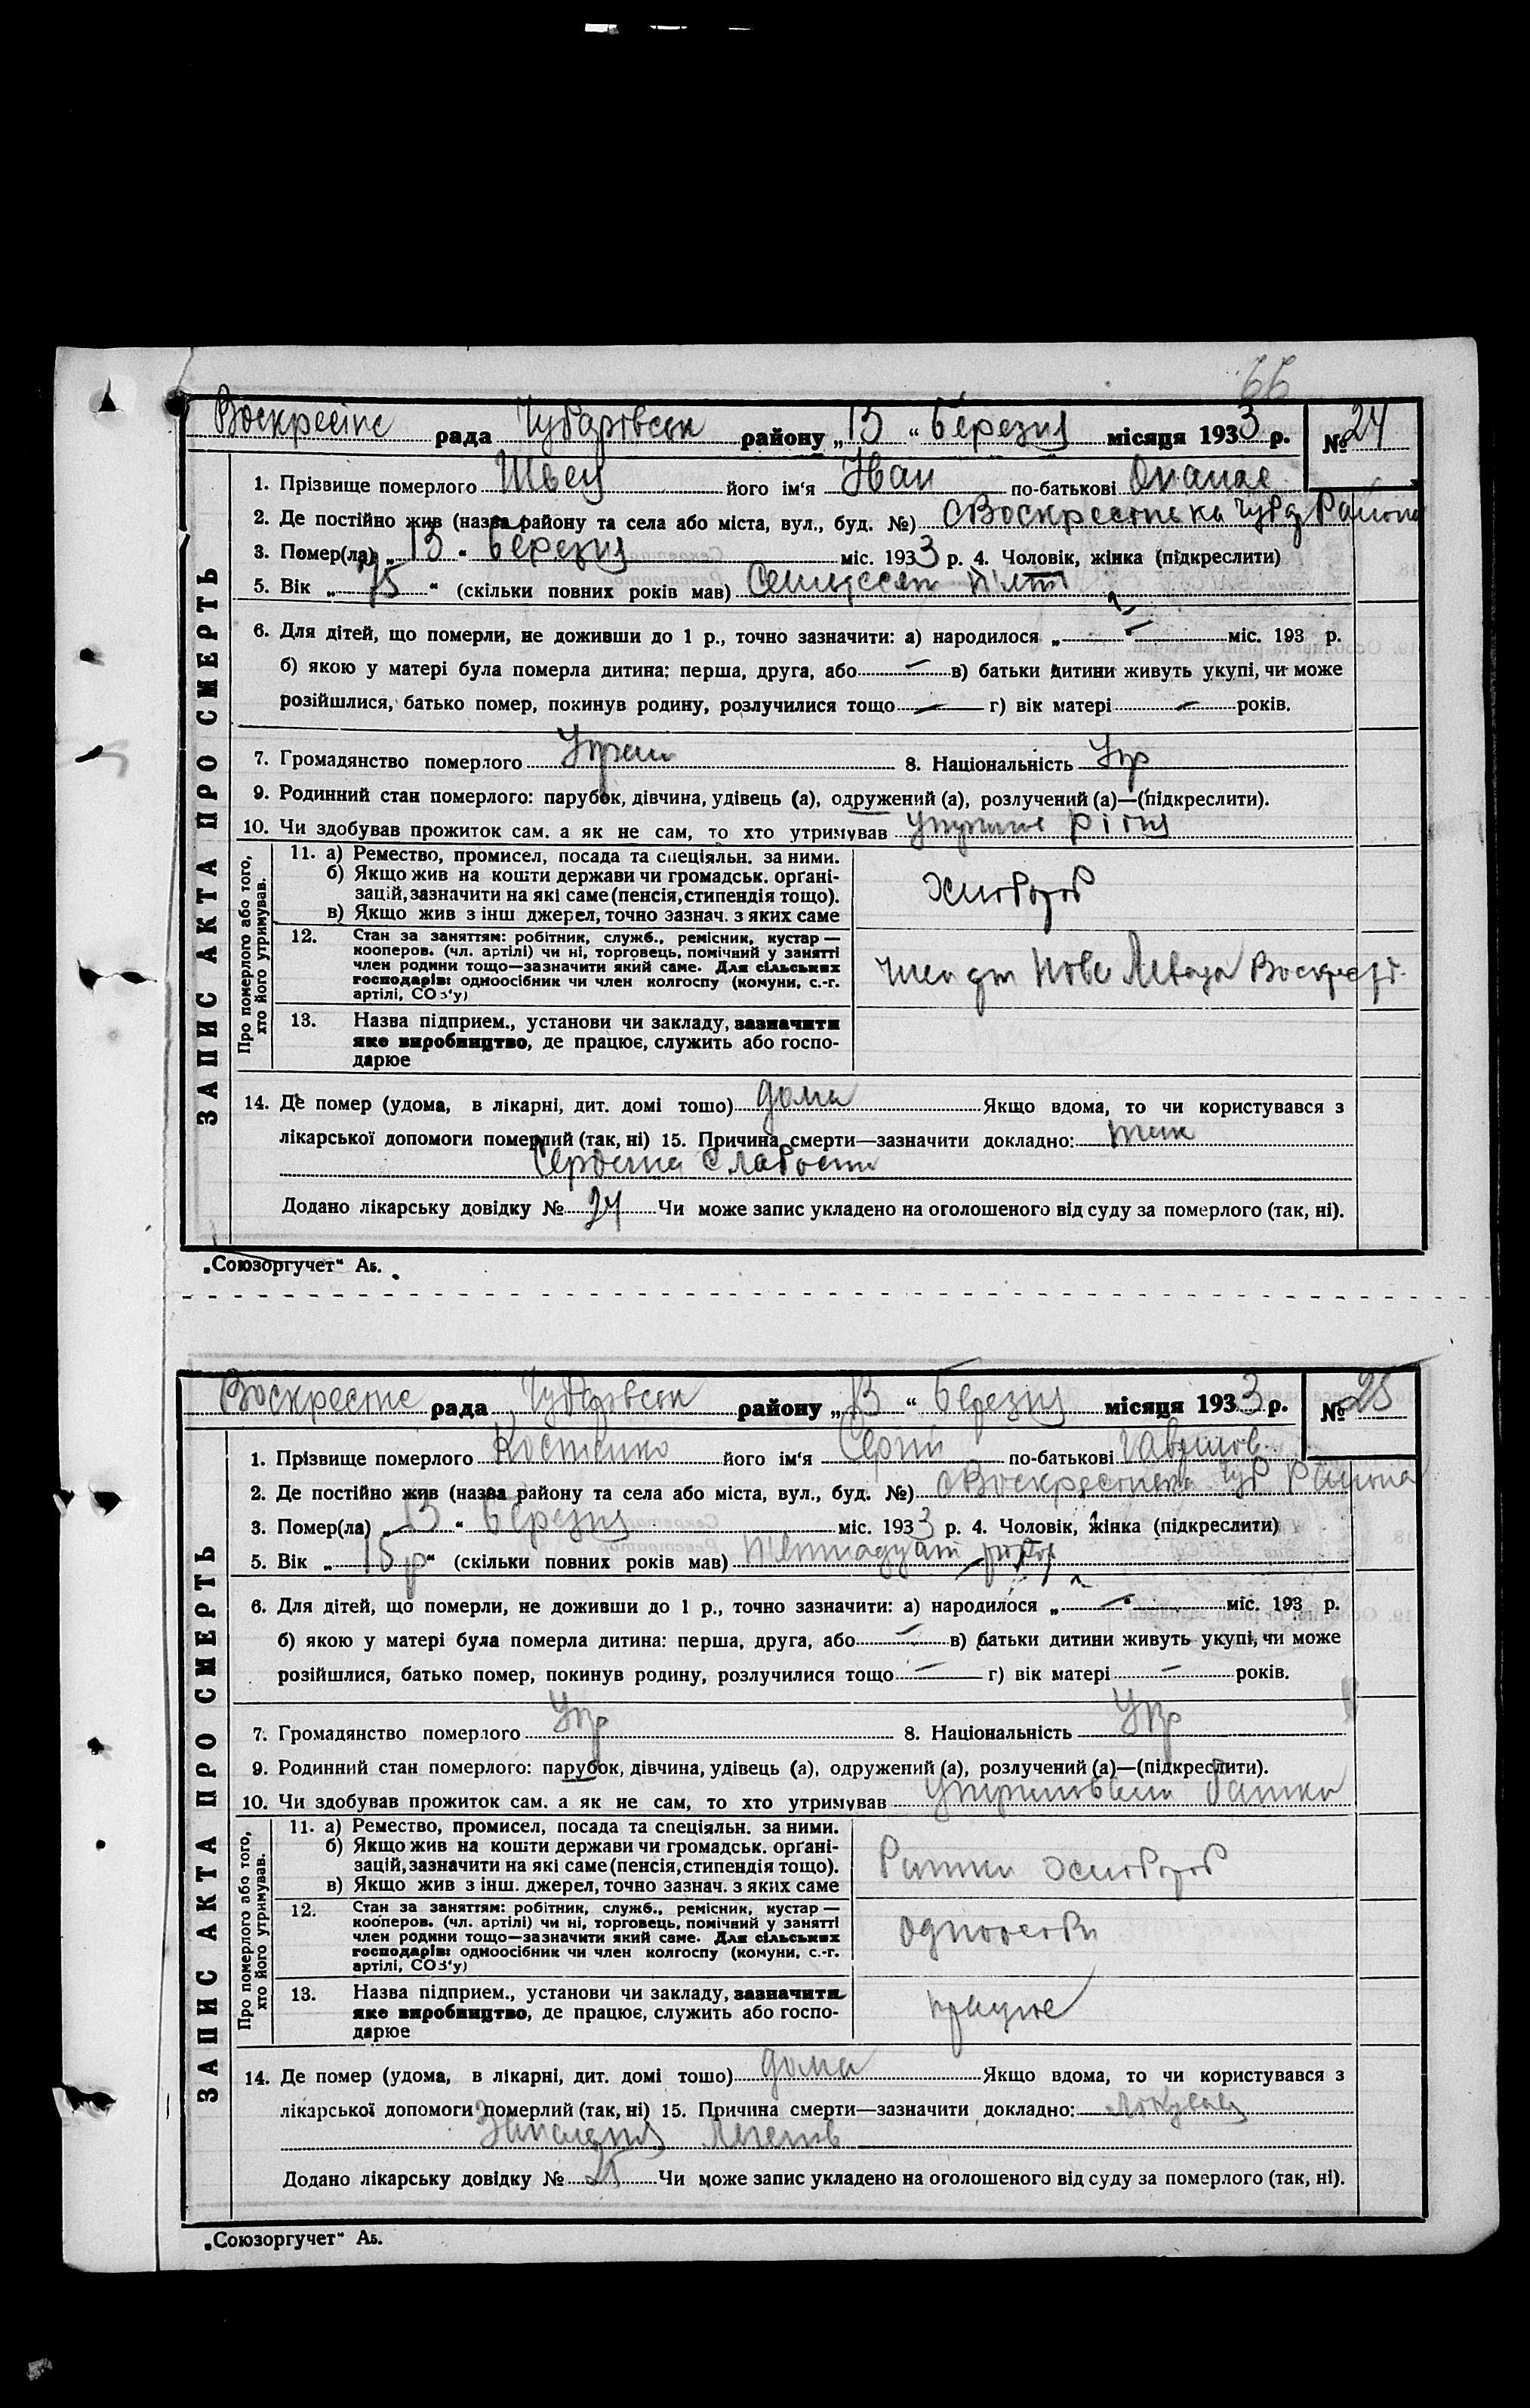 66
Воскресінс рада Чубарівськ району „13“ березня місяця 1933 р. № 24
ЗАПИС АКТА ПРО СМЕРТЬ
1. Прізвище померлого Швец його ім'я Іван по-батькові Опанас
2. Де постійно жив (назва району та села або міста, вул., буд. №) с Воскресенка Чуб Района
3. Помер(ла) „13“ березня міс. 1933 р. 4. Чоловік, жінка (підкреслити)
5. Вік „75“ (скільки повних років мав) Семдесят
6. Для дітей, що померли, не доживши до 1 р., точно зазначити: а) народилося „ “ міс. 193 р.
б) якою у матері була померла дитина: перша, друга, або — в) батьки дитини живуть укупі, чи може
розійшлися, батько помер, покинув родину, розлучилися тощо — г) вік матері — років.
7. Громадянство померлого 8. Національність Укр
9. Родинний стан померлого: парубок, дівчина, удівець (а), одружений (а), розлучений (а)—(підкреслити).
10. Чи здобував прожиток сам. а як не сам, то хто утримував
Про померлого або того, хто його утримував.
11. а) Ремество, промисел, посада та спеціяльн. за ними.
б) Якщо жив на кошти держави чи громадськ. орґані-
зацій, зазначити на які саме (пенсія, стипендія тощо).
в) Якщо жив з інш джерел, точно зазнач. з яких саме
Хлібороб
12. Стан за заняттям: робітник, служб., ремісник, кустар —
кооперов. (чл. артілі) чи ні, торговець, помічний у занятті
член родини тощо—зазначити який саме. Для сільських
господарів: одноосібник чи член колгоспу (комуни, с.-г.
артілі, СОЗ'у)
13. Назва підприєм., установи чи закладу, зазначити
яке виробництво, де працює, служить або госпо-
дарює
14. Де помер (удома, в лікарні, дит. домі тощо) дома Якщо вдома, то чи користувався з
лікарської допомоги померлий (так, ні) 15. Причина смерти—зазначити докладно: так
Сердешна слабость
Додано лікарську довідку № 24 Чи може запис укладено на оголошеного від суду за померлого (так, ні).
„Союзоргучет“ Аз.
Воскресінс рада Чубарівськ району „13“ березня місяця 1933 р. № 25
ЗАПИС АКТА ПРО СМЕРТЬ
1. Прізвище померлого Костенко його ім'я Сергій по-батькові Гаврилов
2. Де постійно жив (назва району та села або міста, вул., буд. №) с Воскресенка Чуб Района
3. Помер(ла) „13“ березня міс. 1933 р. 4. Чоловік, жінка (підкреслити)
5. Вік „15р“ (скільки повних років мав) Пятнадцать
6. Для дітей, що померли, не доживши до 1 р., точно зазначити: а) народилося „—“ міс. 193 р.
б) якою у матері була померла дитина: перша, друга, або — в) батьки дитини живуть укупі, чи може
розійшлися, батько помер, покинув родину, розлучилися тощо — г) вік матері — років.
7. Громадянство померлого Укр 8. Національність Укр
9. Родинний стан померлого: парубок, дівчина, удівець (а), одружений (а), розлучений (а)—(підкреслити).
10. Чи здобував прожиток сам. а як не сам, то хто утримував батько
Про померлого або того, хто його утримував.
11. а) Ремество, промисел, посада та спеціяльн. за ними.
б) Якщо жив на кошти держави чи громадськ. орґані-
зацій, зазначити на які саме (пенсія, стипендія тощо).
в) Якщо жив з інш. джерел, точно зазнач. з яких саме
Батько хлібороб
12. Стан за заняттям: робітник, служб., ремісник, кустар —
кооперов. (чл. артілі) чи ні, торговець, помічний у занятті
член родини тощо—зазначити який саме. Для сільських
господарів: одноосібник чи член колгоспу (комуни, с.-г.
артілі, СОЗ'у)
13. Назва підприєм., установи чи закладу, зазначити
яке виробництво, де працює, служить або госпо-
дарює
працює
14. Де помер (удома, в лікарні, дит. домі тощо) дома Якщо вдома, то чи користувався з
лікарської допомоги померлий (так, ні) 15. Причина смерти—зазначити докладно:
Запаления Легенів
Додано лікарську довідку № 25 Чи може запис укладено на оголошеного від суду за померлого (так, ні).
„Союзоргучет“ Аз.